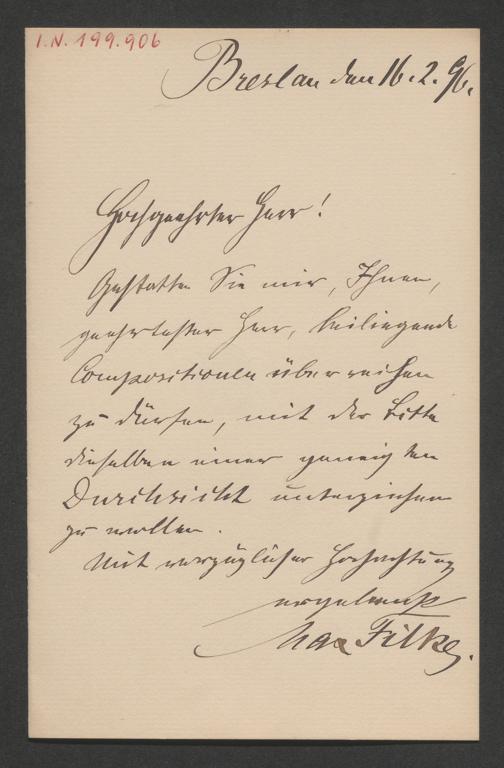 I.N. 199.906
Breslau den 16.2.96.
Hochgeehrter Herr!
Gestatten Sie mir, Ihnen,
geehrtester Herr, beiliegende
Compositionen überreichen
zu dürfen, mit der Bitte
dieselben einer geneigten
Durchsicht unterziehen
zu wollen.
Mit vorzüglicher Hochachtung
ergebenst
Max Filke.